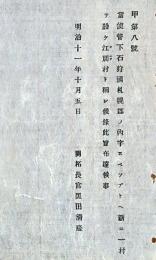 甲第八號
當使管下石狩國札幌郡ノ內字エベツブトヘ新ニ一村
ヲ設ケ江別村ト稱シ候條此旨布達候事
明治十一年十月五日
開拓長官黒田清隆